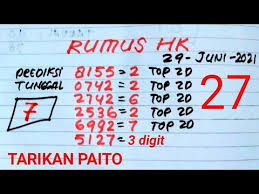 RUMUS HK
29-JUNI-2021
PREDIKSI
TUNGGAL
7
8155=2 TOP 2D
0742=2 TOP 2D
2742=6 TOP 2D
2536=2 TOP 2D
6992=7 TOP 2D
5127=3 digit
27
TARIKAN PAITO